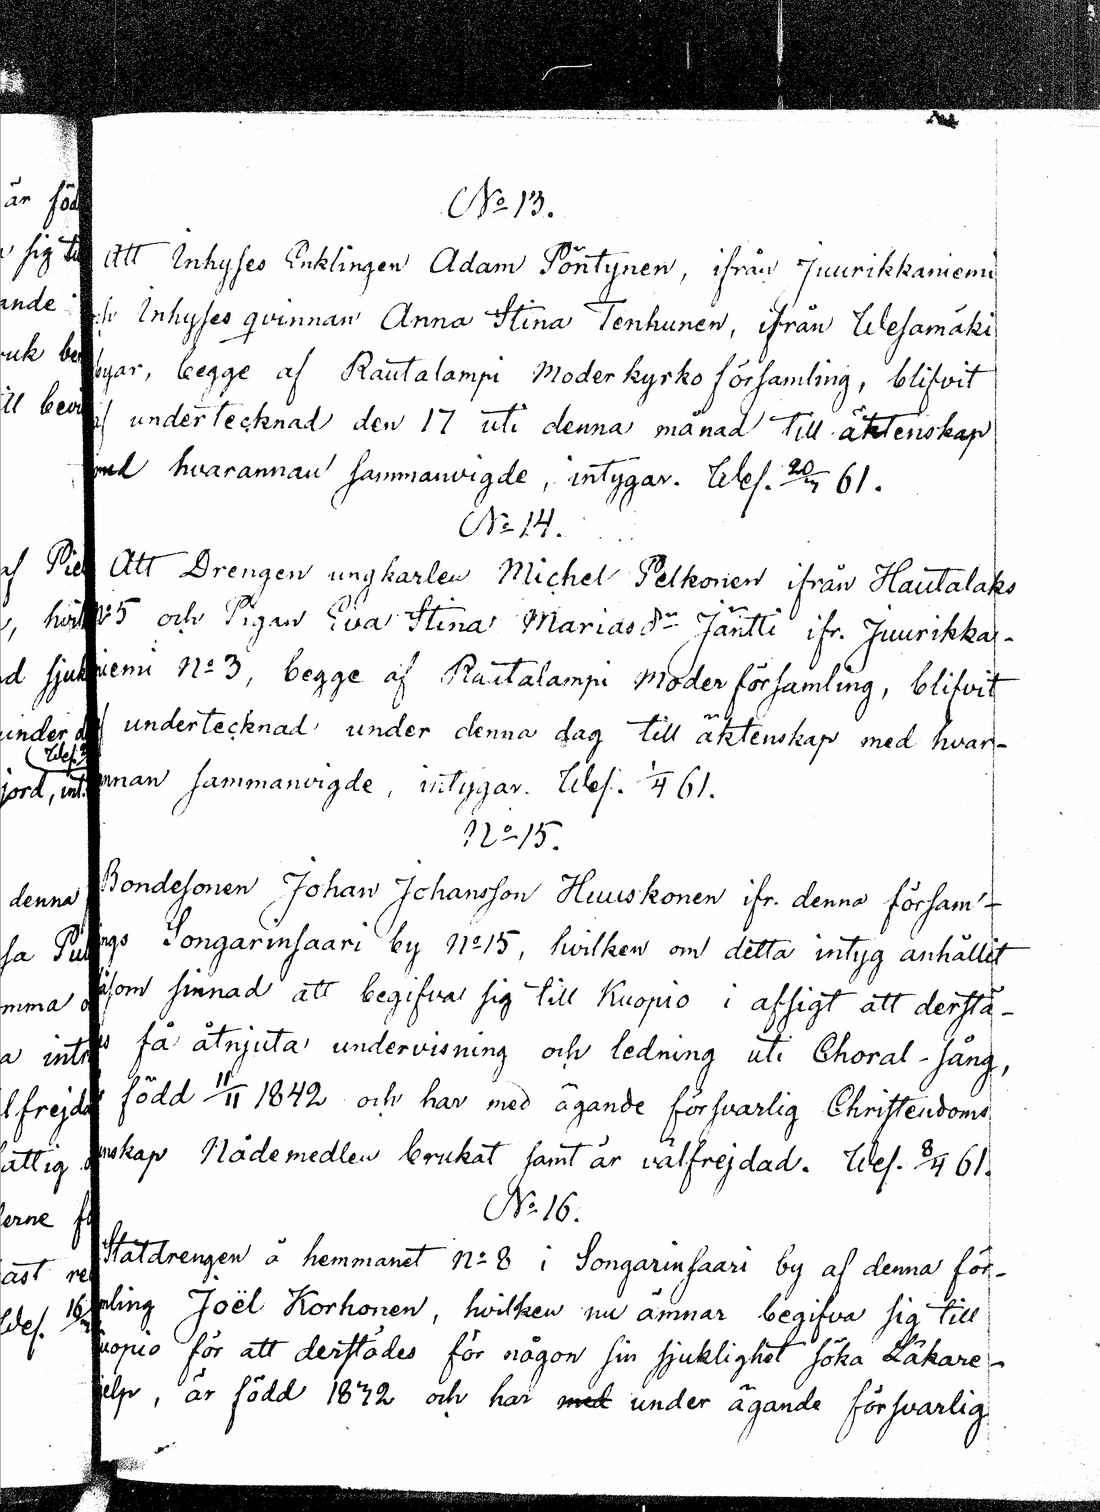 är föd
sig ti
ande
ruk be
ill bevi
af Pie
, hvil
d sjuk
under d
Wes.
jord, int.
denna
sa Pu
mma o
a intr
lfrejda
attig
erne f
ast re
Wes. 16
No 13.
Att Inhyses Enklingen Adam Pöntynen, ifrån Juurikkaniemi
ch Inhyses qvinnan Anna Stina Tenhunen, ifrån Wesamäki
byar, begge af Rautalampi Moderkyrko församling, blifvit
af undertecknad den 17 uti denna månad till äktenskap
med hvarannan sammanvigde, intygar. Wes. 20/ 61.
No 14.
Att Drengen ungkarlen Michel Pelkonen ifrån Hautalaks
No 5 och Pigan Eva Stina Mariasdr Jäntti ifr. Juurikka-
niemi No 3, begge af Rautalampi Moderförsamling, blifvit
f undertecknad under denna dag till äktenskap med hvar-
nnan sammanvigde, intygar. Wes. 1/4 61.
No 15.
Bondesonen Johan Johansson Huuskonen ifr. denna försam-
ngs Songarinsaari by No 15, hvilken om detta intyg anhållit
såsom sinnad att begifva sig till Kuopio i afsigt att derstä-
s få åtnjuta undervisning och ledning uti Choral-sång,
född 11/11 1842 och har med ägande försvarlig Christendoms
nskap Nådemedlen brukat samt är välfrejdad. Wes. 8/4 61.
No 16.
Statdrengen å hemmanet No 8 i Songarinsaari by af denna för-
mling Joël Korhonen, hvilken nu ämnar begifva sig till
uopio för att derstädes för någon sin sjuklighet söka Läkare-
jelp, är född 1832 och har med under ägande försvarlig